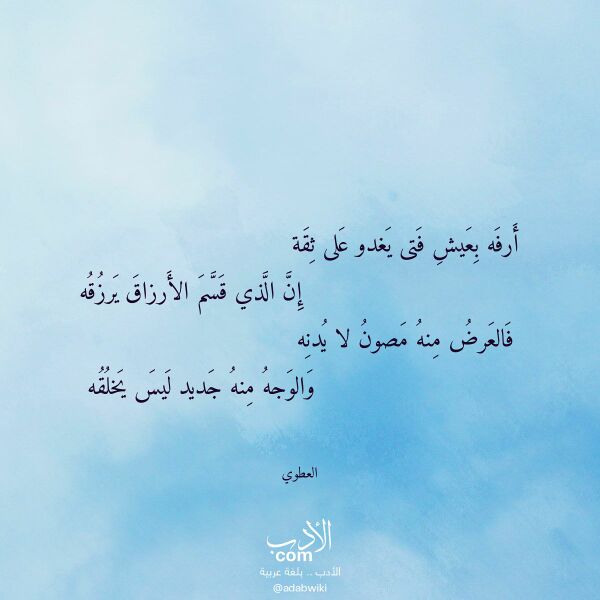 أَرفَه بِعَيشِ فَتى يَغدو عَلى ثِقَة
إِنَّ الَّذي قَسَّمَ الأَرزاقَ يَرزُقُه
فَالعَرضُ مِنهُ مَصونُ لا يُدنِه
وَالوَجهُ مِنهُ جَديد لَيسَ يَخلُقُه
العطوي
الأدب
com
الأدب .. بلغة عربية
@adabwiki